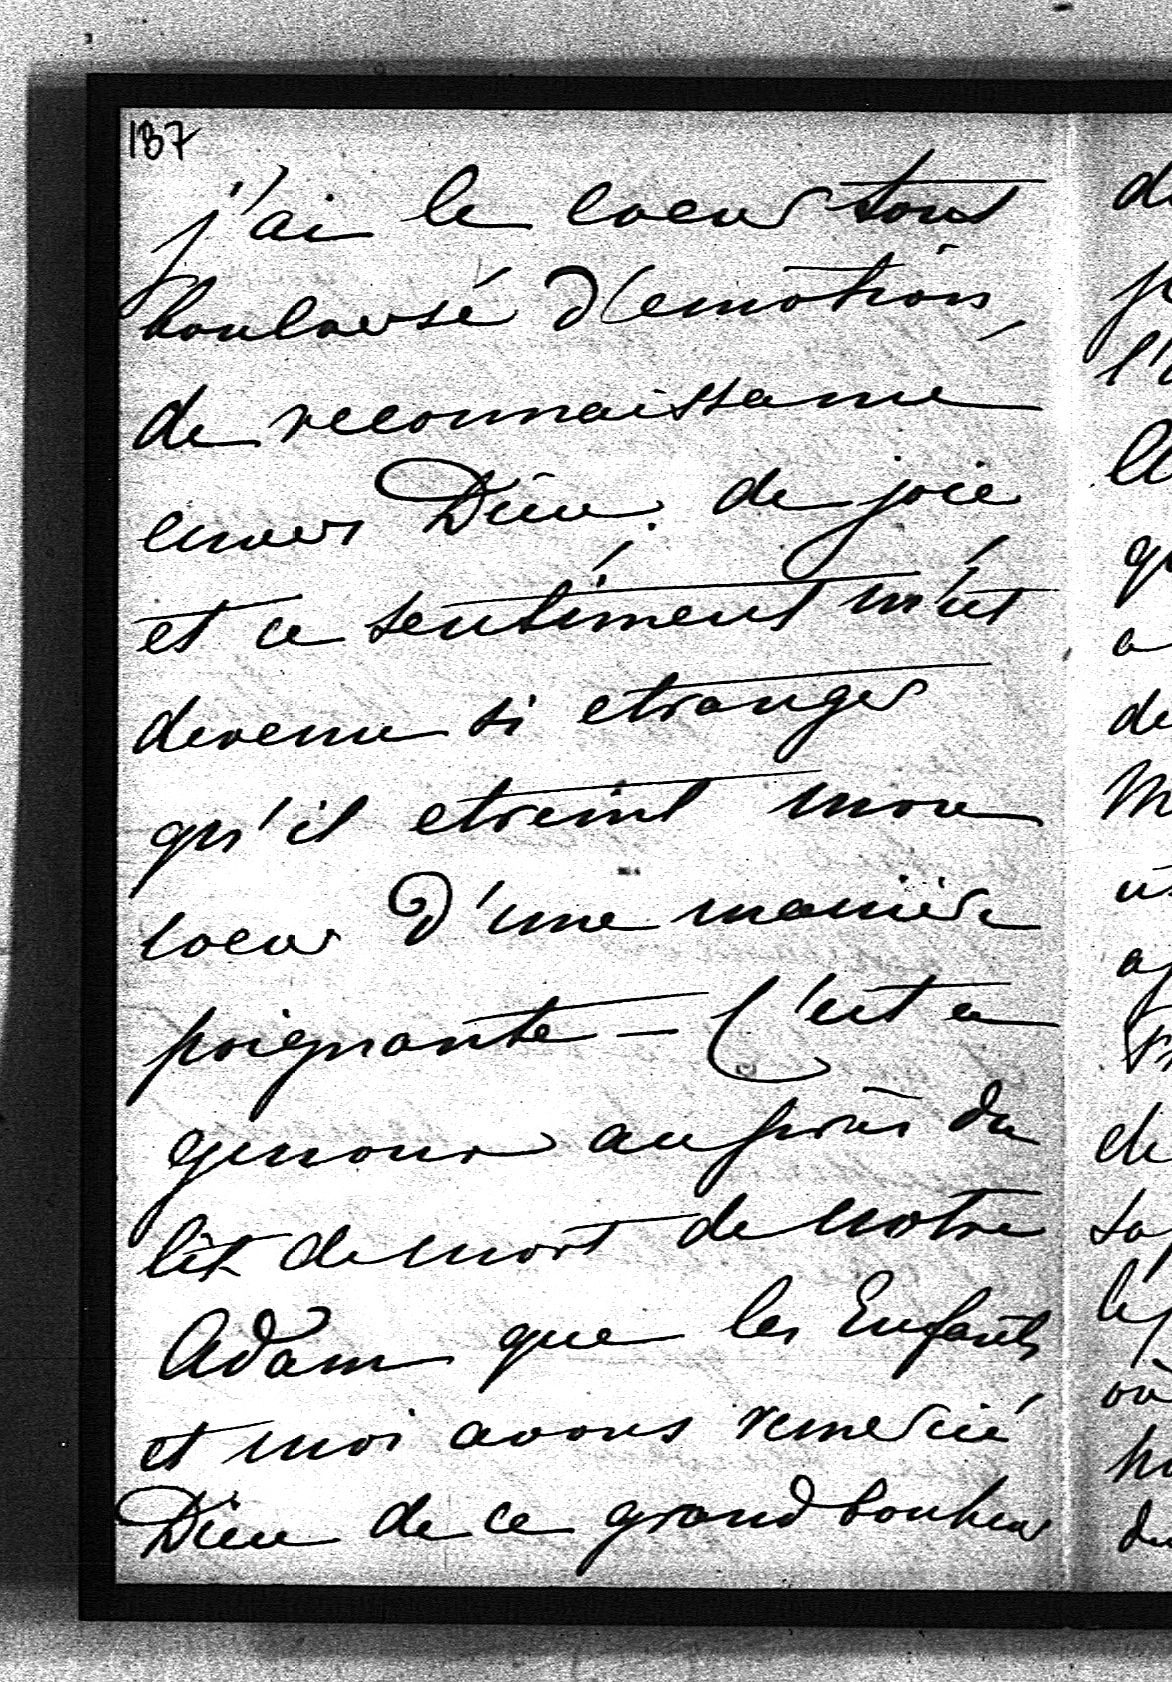 187
j'ai le coeur tout
boulversé d'emotion,
de reconnaissance
envers Dieu, de joie
et ce sentiment m'est
devenu si etranger
qu'il etreint mon
coeur d'une manière
poignante – C'est a
genoux auprès du
lit de mort de notre
Adam que les Enfants
et moi avons remercié
Dieu de ce grand bonheur